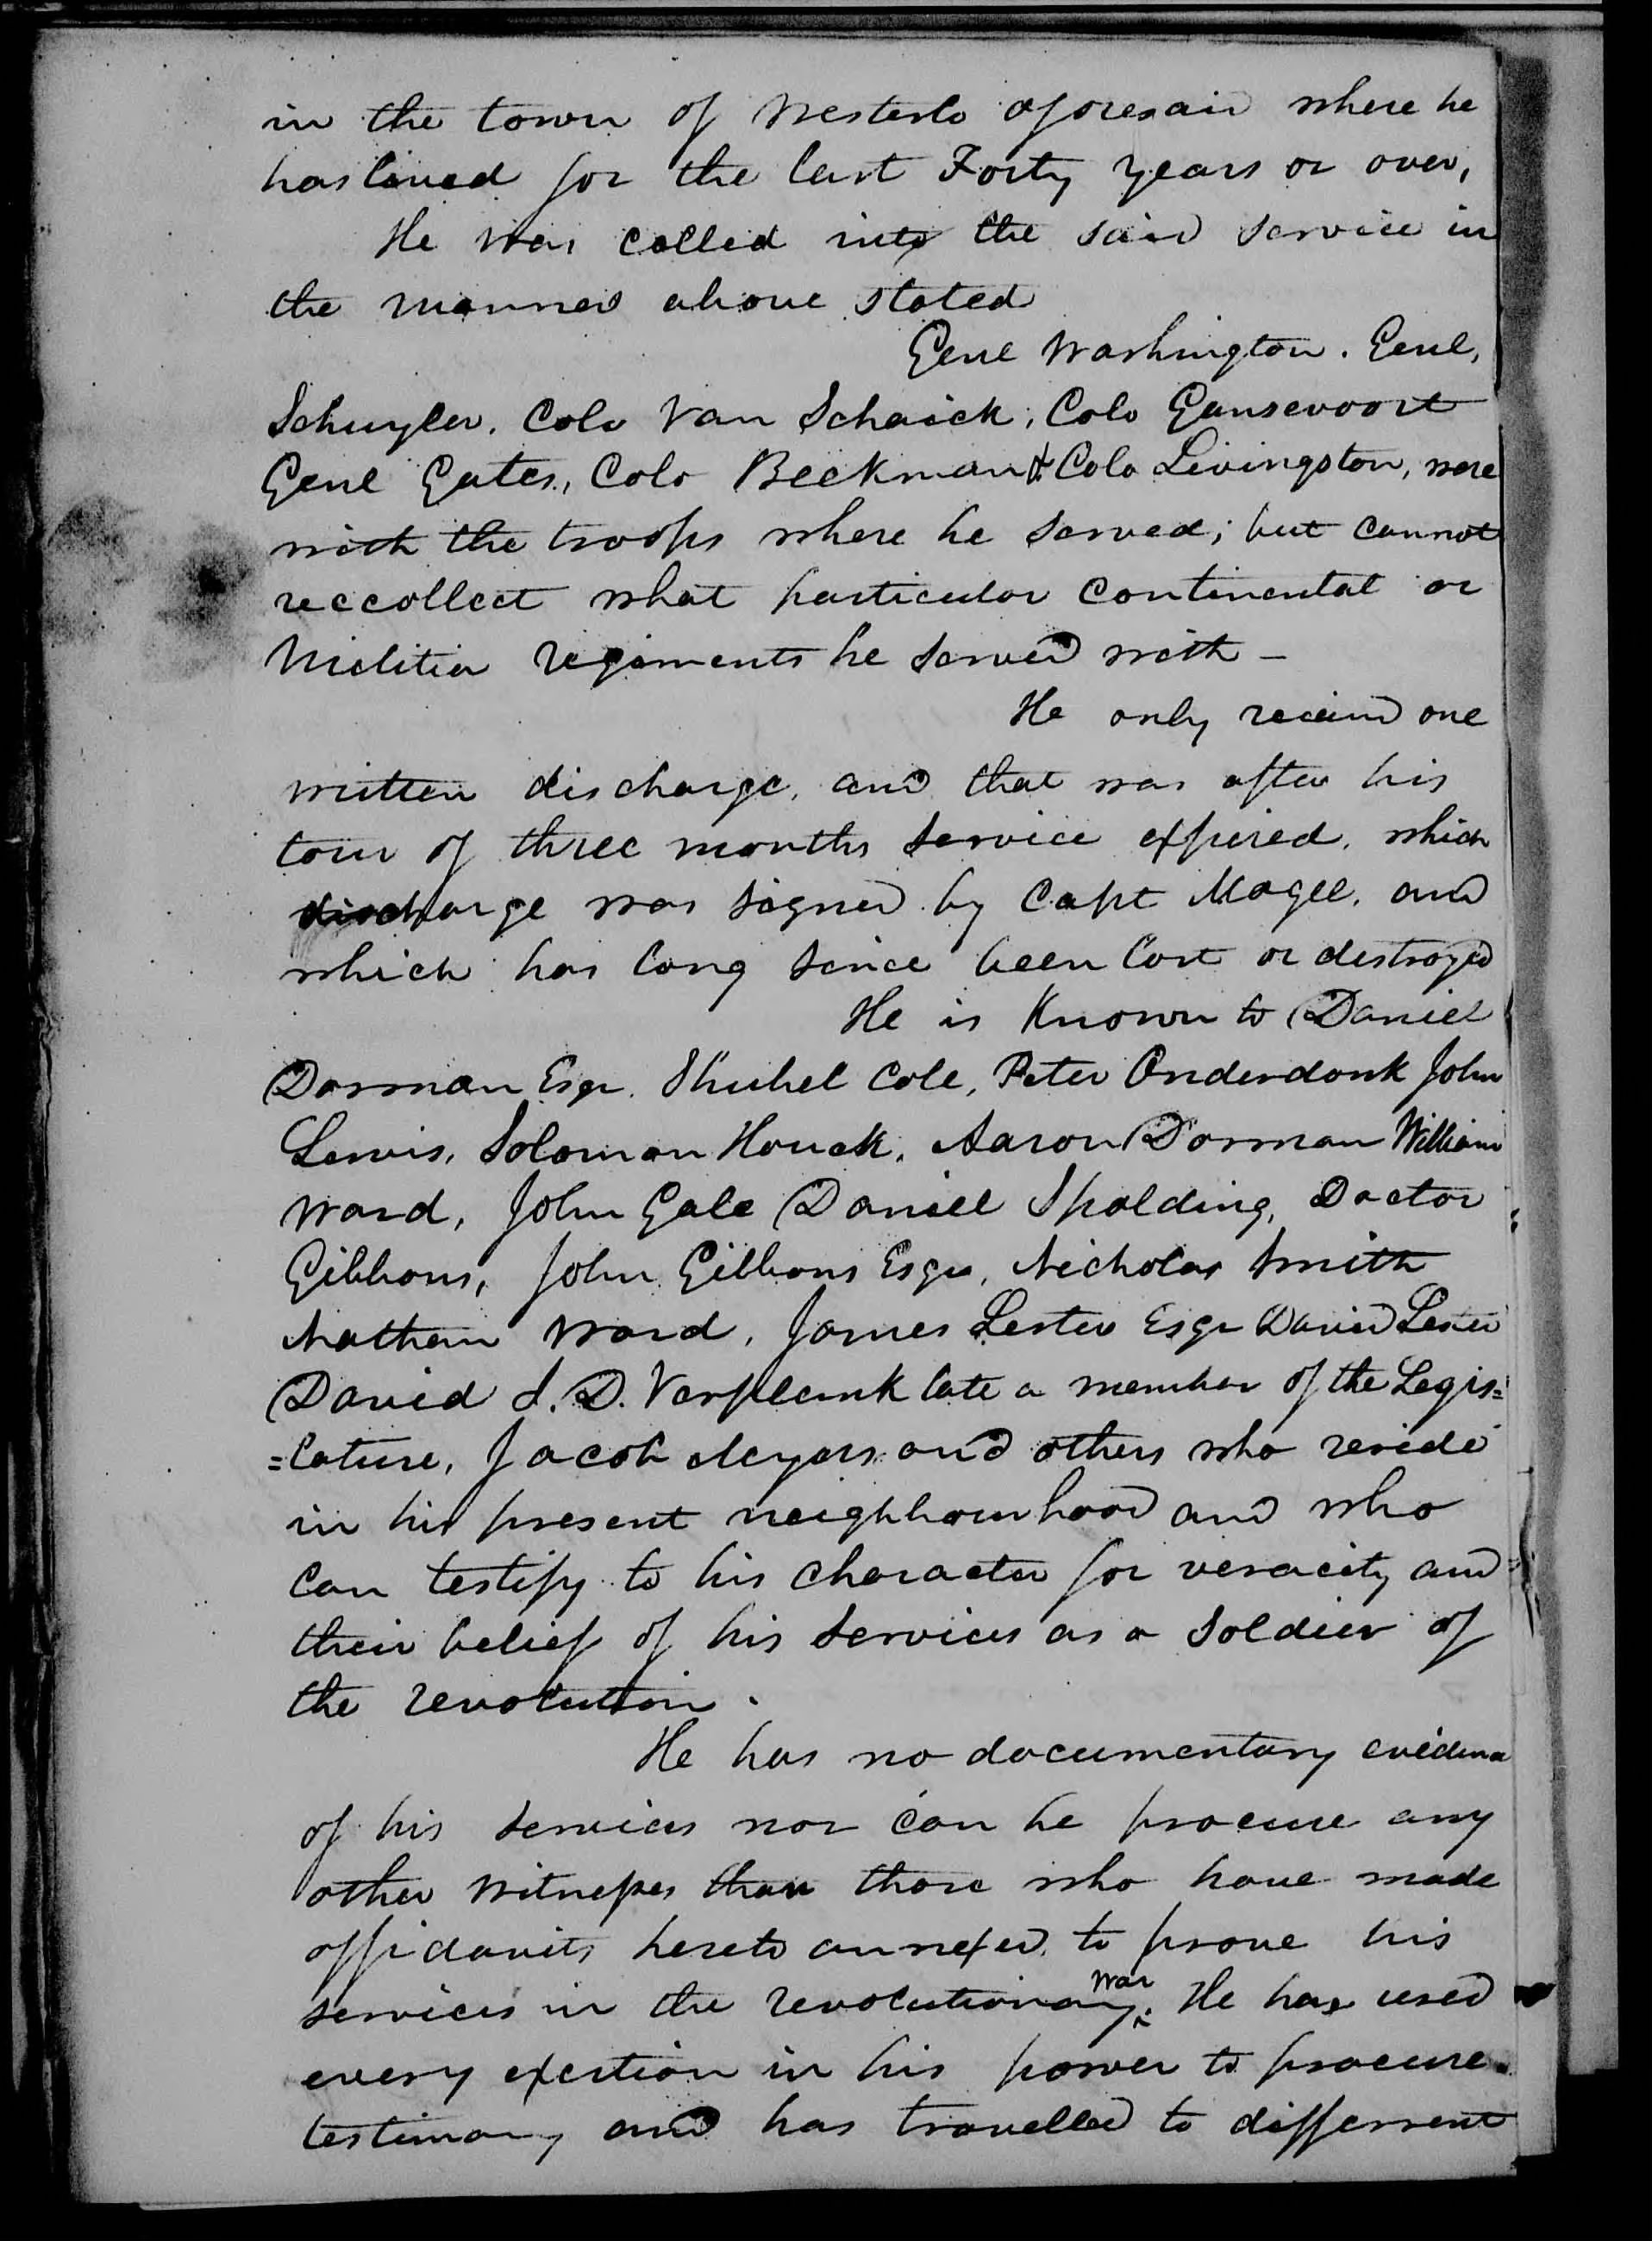 in the town of Westerlo aforesaid where he
has lived for the last Forty years or over,
He was called into the said service in
the manner above stated
Genl Washington. Genl,
Schuyler, Colo Van Schaick, Colo Gansevoort
Genl Gates, Colo Beekman & Colo Livingston, were
with the troops where he served; but cannot
reccollect what particular Continental or
Militia regiments he served with -
He only received one
written discharge, and that was after his
tour of three months service expired, which
discharge was signed by Capt Magee, and
which has long since been lost or destroyed
He is Known to Daniel
Dorman Esqr. Shubel Cole, Peter Onderdonk John
Lewis, Solomon Houck, Aaron Dorman William
Ward, John Gale Daniel Spalding, Doctor
Gibbons, John Gibbons Esqr, Nicholas Smith
Nathan Ward, James Lester Esqr David Lester
David I. D. Verplank late a member of the Legis=
=lature, Jacob Meyers and others who reside
in his present neighbourhood and who
can testify to his character for veracity and
their belief of his services as a soldier of
the revolution.
He has no documentary evidence
of his services nor can he procure any
other witnesses than those who have made
affidavits hereto annexed, to prove his
services in the revolutionary war. He has used
every exertion in his power to procure
testimony and has travelled to different